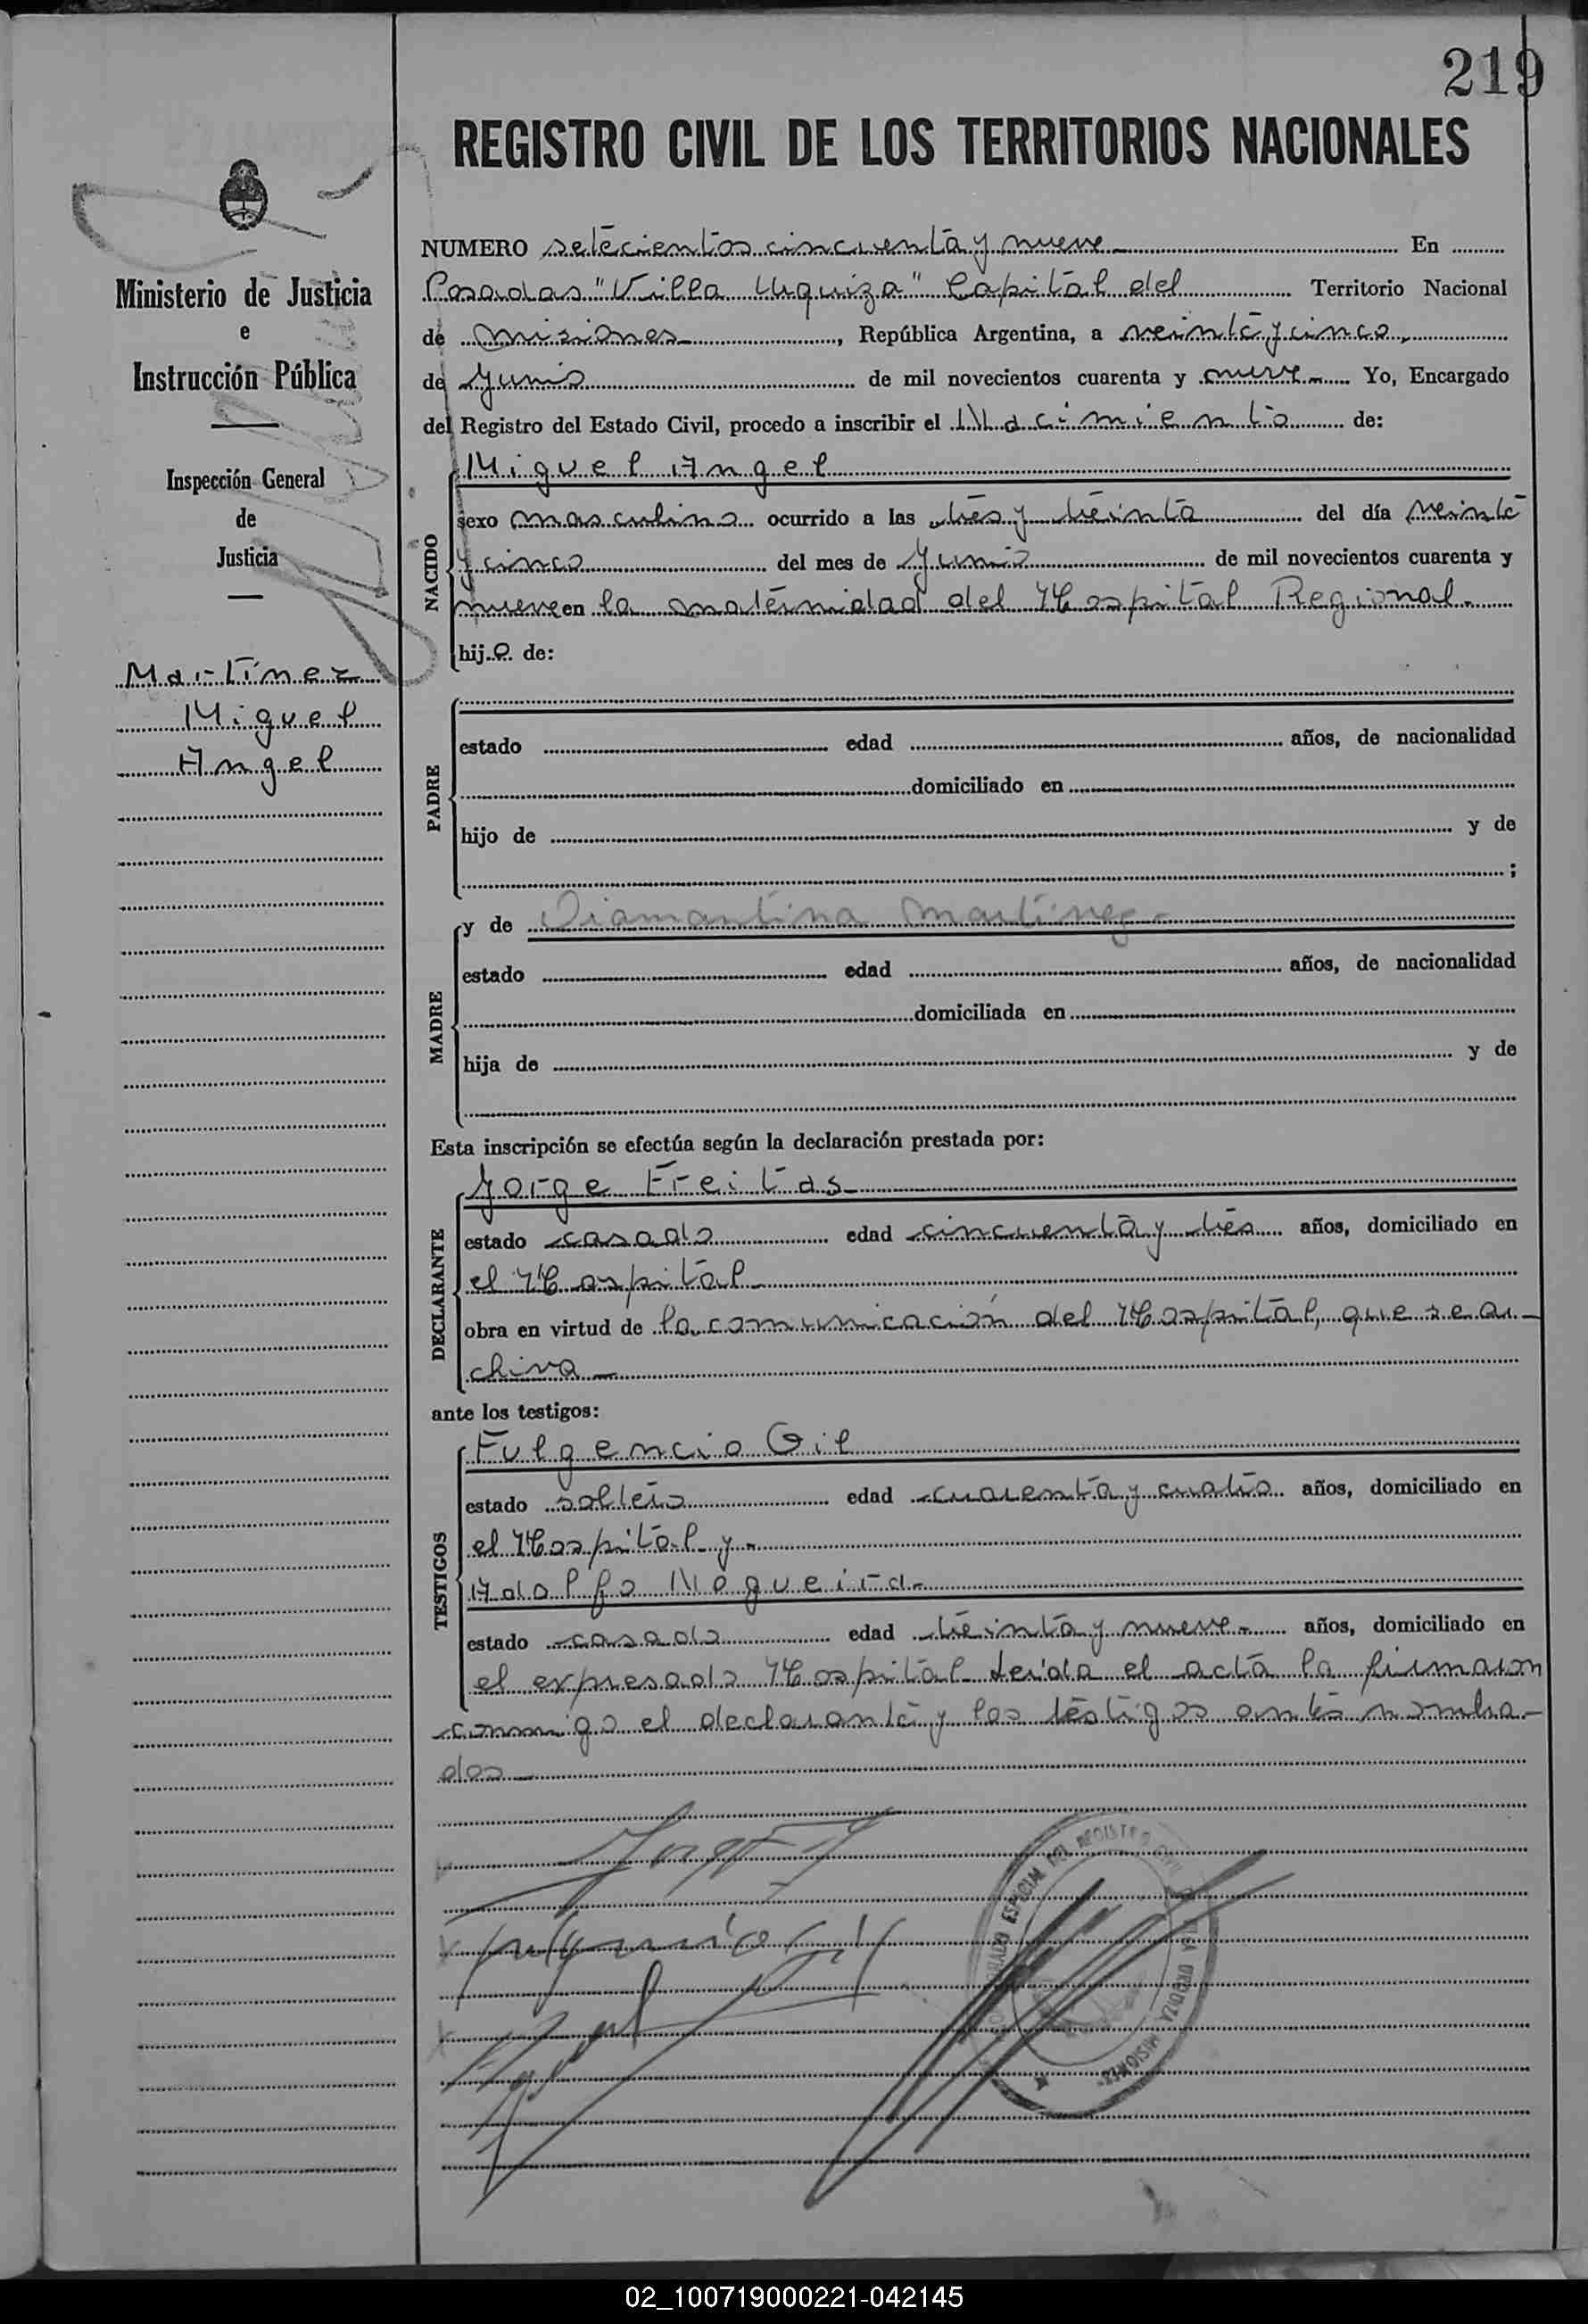 219
REGISTRO CIVIL DE LOS TERRITORIOS NACIONALES
Ministerio de Justicia
e
Instrucción Pública
Inspección General
de
Justicia
Martínez
Miguel
Angel
NUMERO setecientos cincuenta y nueve En
Posadas "Villa Urquiza" Capital del Territorio Nacional
de Misiones, República Argentina, a veinte y cinco
de Junio de mil novecientos cuarenta y nueve Yo, Encargado
del Registro del Estado Civil, procedo a inscribir el Nacimiento de:
NACIDO
Miguel Angel
sexo masculino ocurrido a las tres y treinta del día veinte
y cinco del mes de Junio de mil novecientos cuarenta y
nueve en la maternidad del Hospital Regional.
hijo de:
PADRE
estado edad años, de nacionalidad
domiciliado en
hijo de y de
;
MADRE
y de Diamantina Martinez-
estado edad años, de nacionalidad
domiciliada en
hija de y de
Esta inscripción se efectúa según la declaración prestada por:
DECLARANTE
Jorge Freitas
estado casado edad cincuenta y tres años, domiciliado en
el Hospital
obra en virtud de la comunicación del Hospital, que se ar-
chiva
ante los testigos:
TESTIGOS
Fulgencio Gil
estado soltero edad cuarenta y cuatro años, domiciliado en
el Hospital y
Adolfo Nogueira
estado casado edad treinta y nueve años, domiciliado en
el expresado Hospital leida el acta la firmaron
conmigo el declarante y los testigos antes nombra-
dos
Fulgencio Gil
ESPECIAL DEL REGISTRO CIVIL VILLA URQUIZA MISIONES
02_100719000221-042145